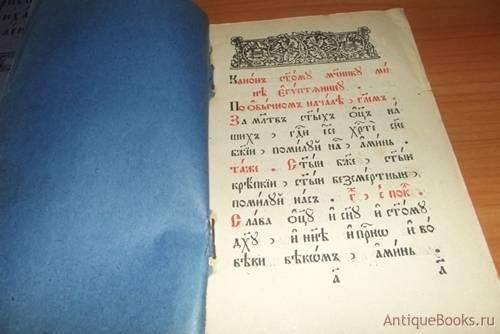 Канонъ ст҃ому мч҃нику ми
нѣ є҆гѵптѧнину .
По ѻ҆бычномъ началѣ , гл҃емъ
За мл҃твъ ст҃ыхъ ѻ҆ц҃ъ на
шихъ , гд҇и і҆с҃е хр҇те сн҃е
бж҃їи , поми́лꙋй на҇ , а҆ми́нь .
таже . Ст҃ыи бж҃е , ст҃ыи
крѣпкїи , ст҃ыи безсме́ртныи ,
поми́лꙋй насъ . г҃ , с пок҇ .
Сла́ва ѻ҆ц҃ꙋ и҆ сн҃ꙋ и҆ ст҃омꙋ
дх҃ꙋ , и҆ нн҃ѣ и҆ при҇нѡ и҆ во̀
вѣ́ки вѣкѡ́мъ , а҆ми́нь .
а҃ а҃
AntiqueBooks.ru